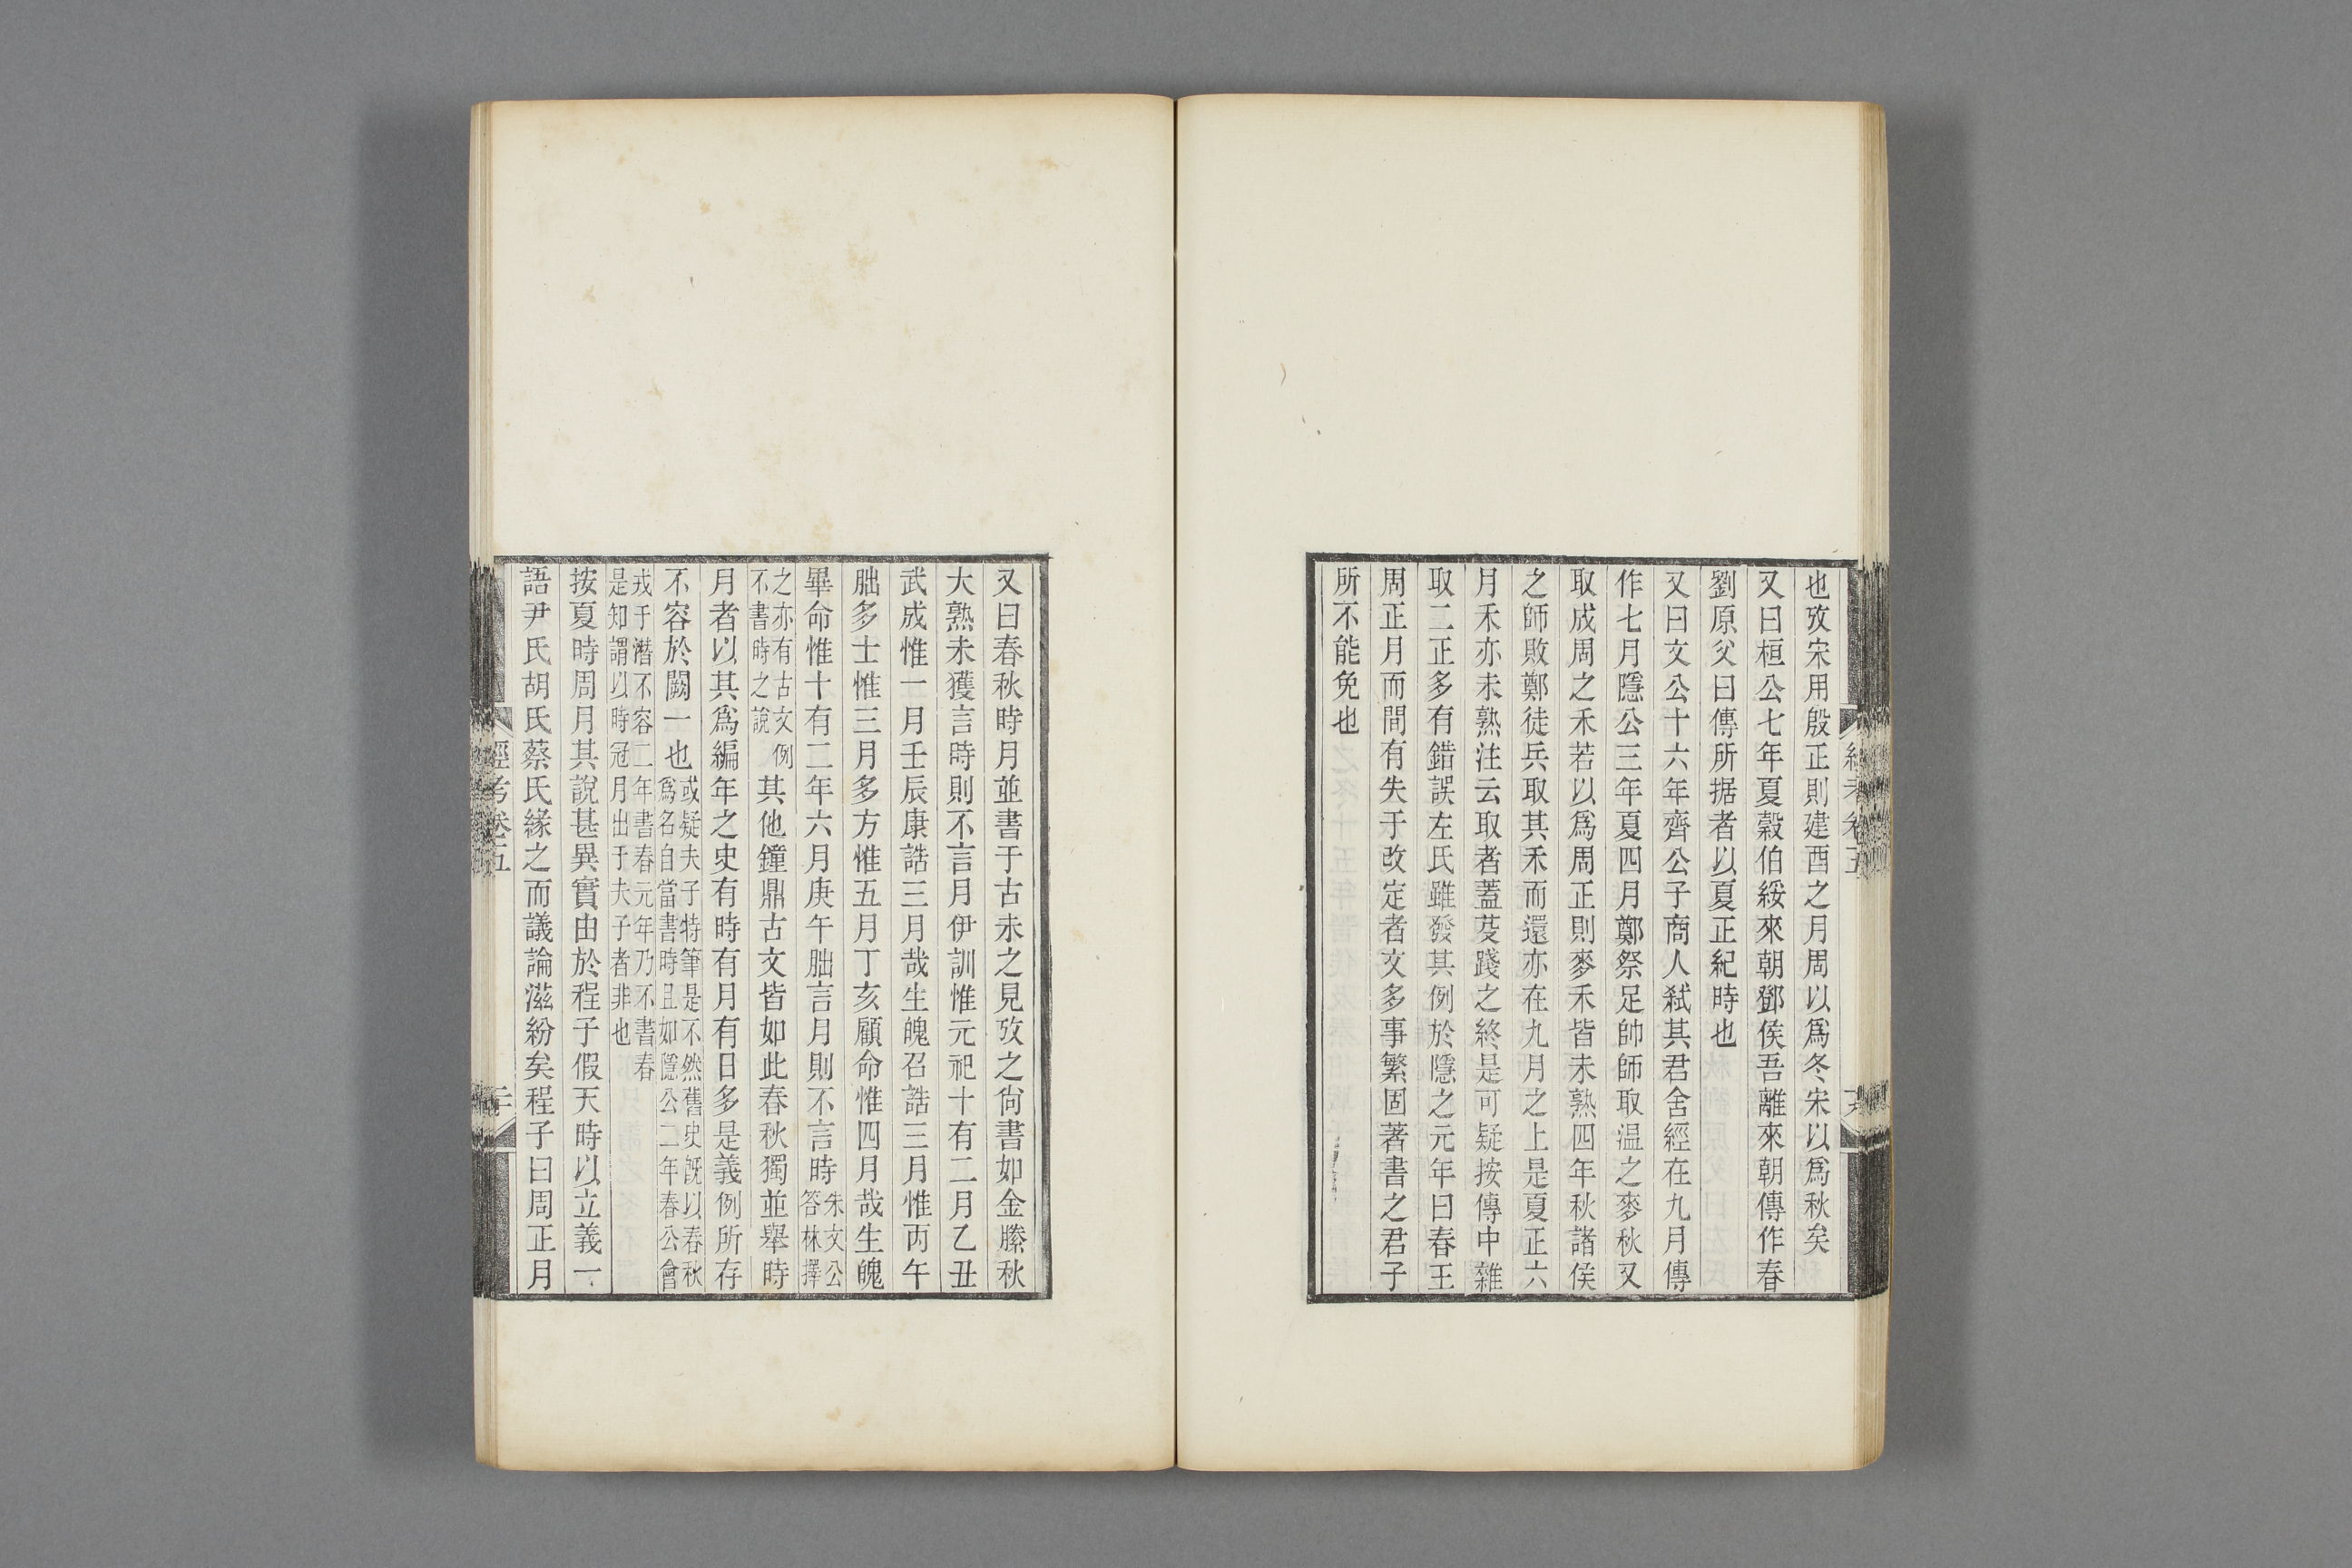 也攷宋用殷正則建酉之月周以爲冬宋以爲秋矣
又曰桓公七年夏穀伯綏來朝鄧侯吾離來朝傳作春
劉原父曰傳所据者以夏正紀時也
又曰文公十六年齊公子商人弑其君舍經在九月傳
作七月隱公三年夏四月鄭祭足帥師取温之麥秋又
取成周之禾若以爲周正則麥禾皆未熟四年秋諸侯
之師敗鄭徒兵取其禾而還亦在九月之上是夏正六
月禾亦未熟注云取者蓋芟踐之終是可疑按傳中雜
取二正多有錯誤左氏雖發其例於隱之元年曰春王
周正月而間有失于改定者文多事繁固著書之君子
所不能免也
又曰春秋時月並書于古未之見攷之尙書如金縢秋
大熟未獲言時則不言月伊訓惟元祀十有二月乙丑
武成惟一月壬辰康誥三月哉生魄召誥三月惟丙午
朏多士惟三月多方惟五月丁亥顧命惟四月哉生魄
畢命惟十有二年六月庚午朏言月則不言時朱文公答林擇
之亦有古文例不書時之說其他鐘鼎古文皆如此春秋獨並舉時
月者以其爲編年之史有時有月有日多是義例所存
不容於闕一也或疑夫子特筆是不然舊史旣以春秋爲名自當書時且如隱公二年春公會
戎于潛不容二年書春元年乃不書春是知謂以時冠月出于夫子者非也
按夏時周月其說甚異實由於程子假天時以立義一
語尹氏胡氏蔡氏緣之而議論滋紛矣程子曰周正月
經考卷五